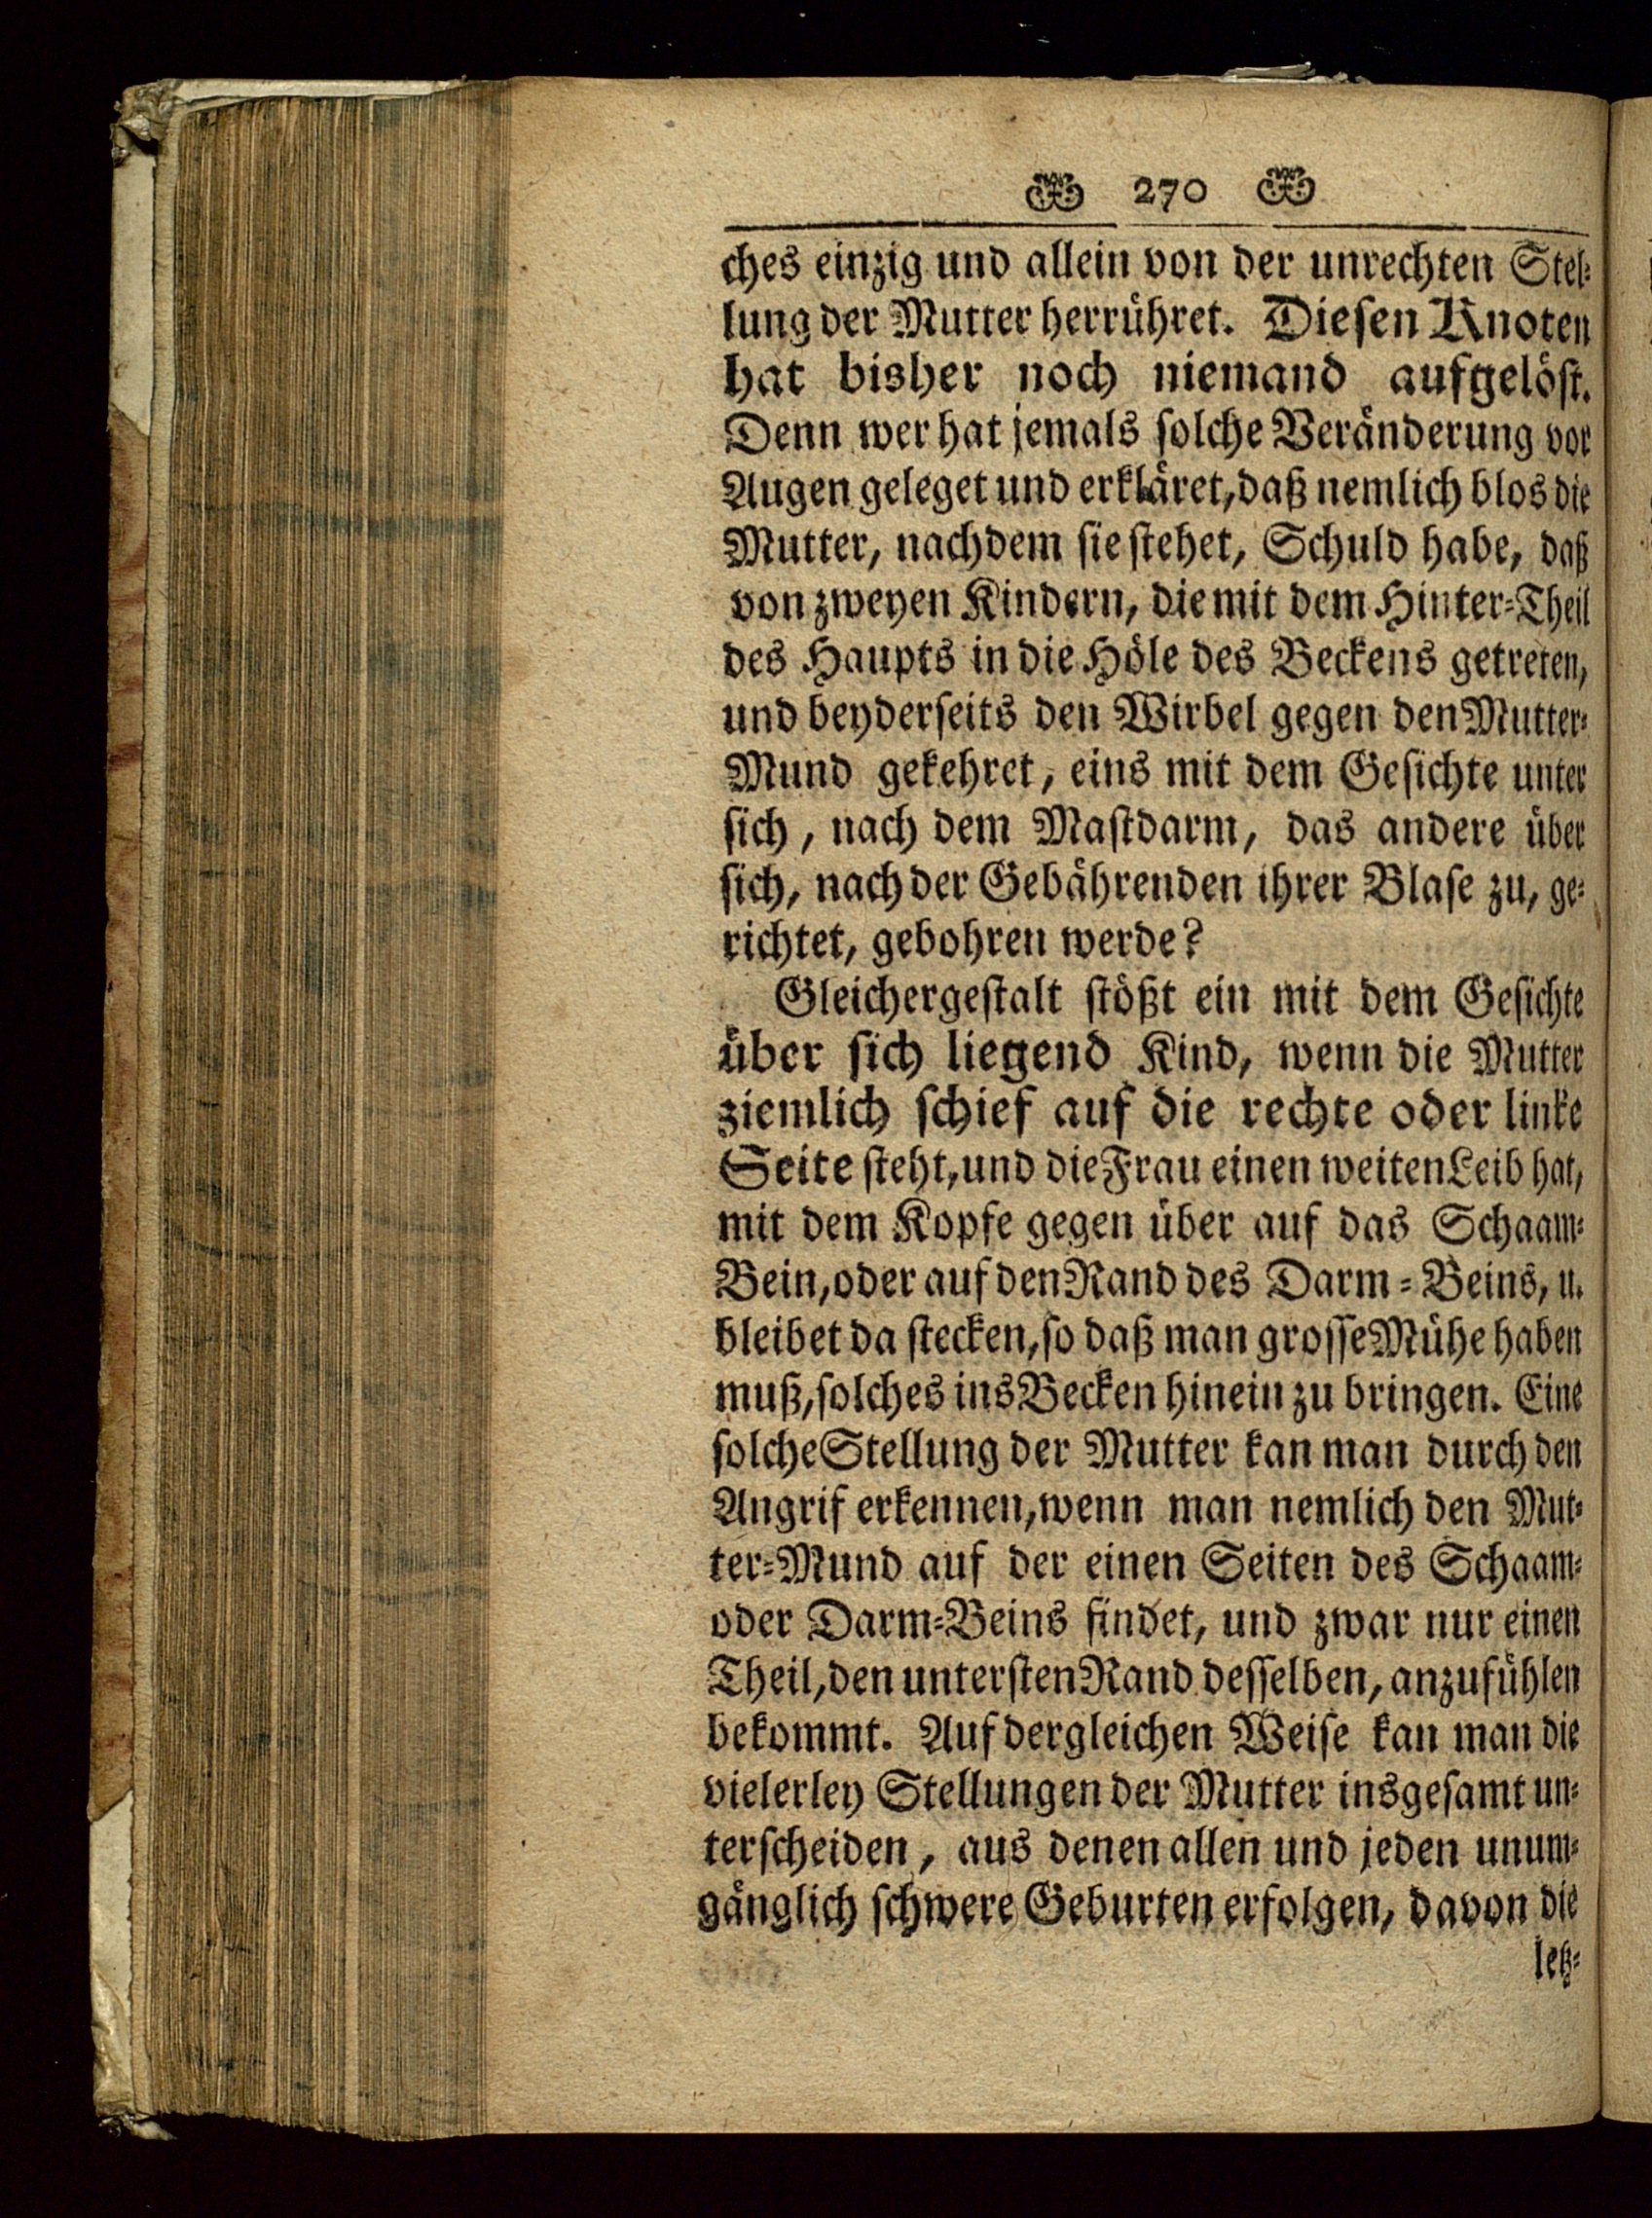 270
ches einzig und allein von der unrechten Stel-
lung der Mutter herrühret. Diesen Knoten
hat bisher noch niemand aufgelöst.
Denn wer hat jemals solche Veränderung vor
Augen geleget und erkläret, daß nemlich blos die
Mutter, nachdem sie stehet, Schuld habe, daß
von zweyen Kindern, die mit dem Hinter-Theil
des Haupts in die Höle des Beckens getreten,
und beyderseits den Wirbel gegen den Mutter-
Mund gekehret, eins mit dem Gesichte unter
sich, nach dem Mastdarm, das andere über
sich, nach der Gebährenden ihrer Blase zu, ge-
richtet, gebohren werde?
Gleichergestalt stößt ein mit dem Gesichte
über sich liegend Kind, wenn die Mutter
ziemlich schief auf die rechte oder linke
Seite steht, und die Frau einen weiten Leib hat,
mit dem Kopfe gegen über auf das Schaam-
Bein, oder auf den Rand des Darm-Beins, u.
bleibet da stecken, so daß man grosse Mühe haben
muß, solches ins Becken hinein zu bringen. Eine
solche Stellung der Mutter kan man durch den
Angrif erkennen, wenn man nemlich den Mut-
ter-Mund auf der einen Seiten des Schaam-
oder Darm-Beins findet, und zwar nur einen
Theil, den untersten Rand desselben, anzufühlen
bekommt. Auf dergleichen Weise kan man die
vielerley Stellungen der Mutter insgesamt un-
terscheiden, aus denen allen und jeden unum-
gänglich schwere Geburten erfolgen, davon die
letz-